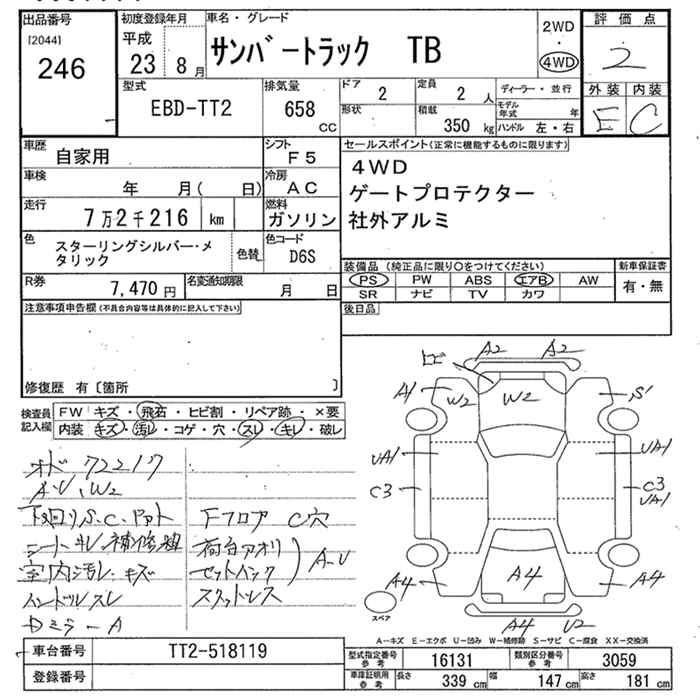 出品番号
[2044]
246
初度登録年月
平成
23 8月
車名・グレード
サンバートラック TB
2WD
・
4WD
評価点
2
外装 内装
E C
型式
EBD-TT2
排気量
658
cc
ドア 2
形状
定員 2 人
積載 350 kg
ディーラー・並行
モデル年式 年
ハンドル 左・右
車歴
自家用
シフト
F5
車検
年 月( 日)
冷房
AC
走行
7万2千216 km
燃料
ガソリン
色
スターリングシルバー・メタリック
色替
色コード
D6S
R券
7,470 円
名変通知期限
月 日
セールスポイント(正常に機能するものに限ります)
4WD
ゲートプロテクター
社外アルミ
装備品(純正品に限り○をつけてください)
PS PW ABS エアB AW
SR ナビ TV カワ
新車保証書
有・無
後日品
注意事項申告欄(不具合内容等は具体的に記入して下さい)
修復歴 有〔箇所 〕
検査員記入欄
FW キズ・飛石・ヒビ割・リペア跡・×要
内装 キズ・汚レ・コゲ・穴・スレ・キレ・破レ
オド 72217
A・U、W2
下回りS、C、
シートキレ補修
室内汚レ・キズ
ハンドルスレ
Dミラー A
Fフロア C穴
荷台アオリ
ゲートインク
スタットレス
A-U
ヒビ
A2 A2
A1 W2 W2 S1
UA1 UA1
C3 C3
UA1
A4 A4 A4
A4 U2
スペア
A-キズ E-エクボ U-凹み W-補修跡 S-サビ C-腐食 XX-交換済
車台番号
TT2-518119
登録番号
型式指定番号 参考
16131
類別区分番号 参考
3059
車庫証明用 参考
長さ 339 cm
幅 147 cm
高さ 181 cm